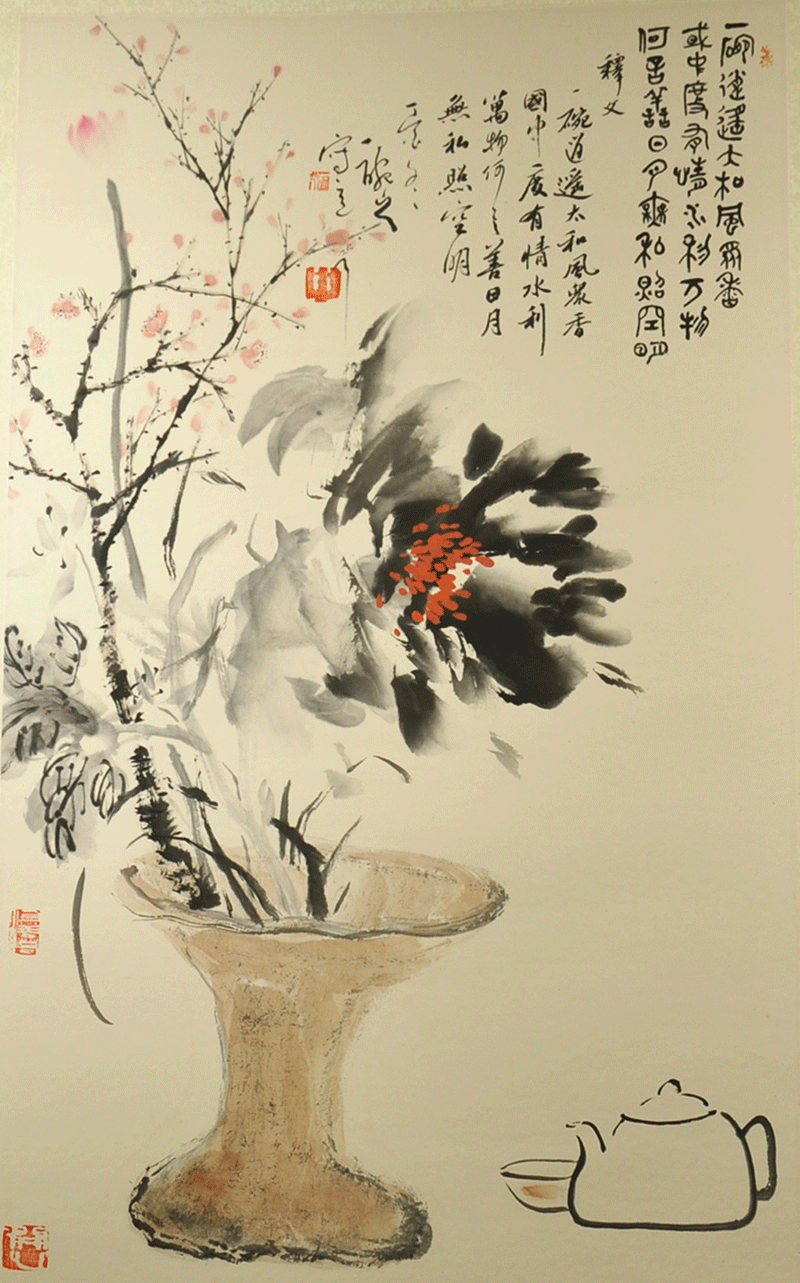 一碗逍遙太和風眾香
或中度有情水利万物
何言善日月無私照空明
釋文
一碗逍遙太和風眾香
國中度有情水利
萬物何言善日月
無私照空明
寫意